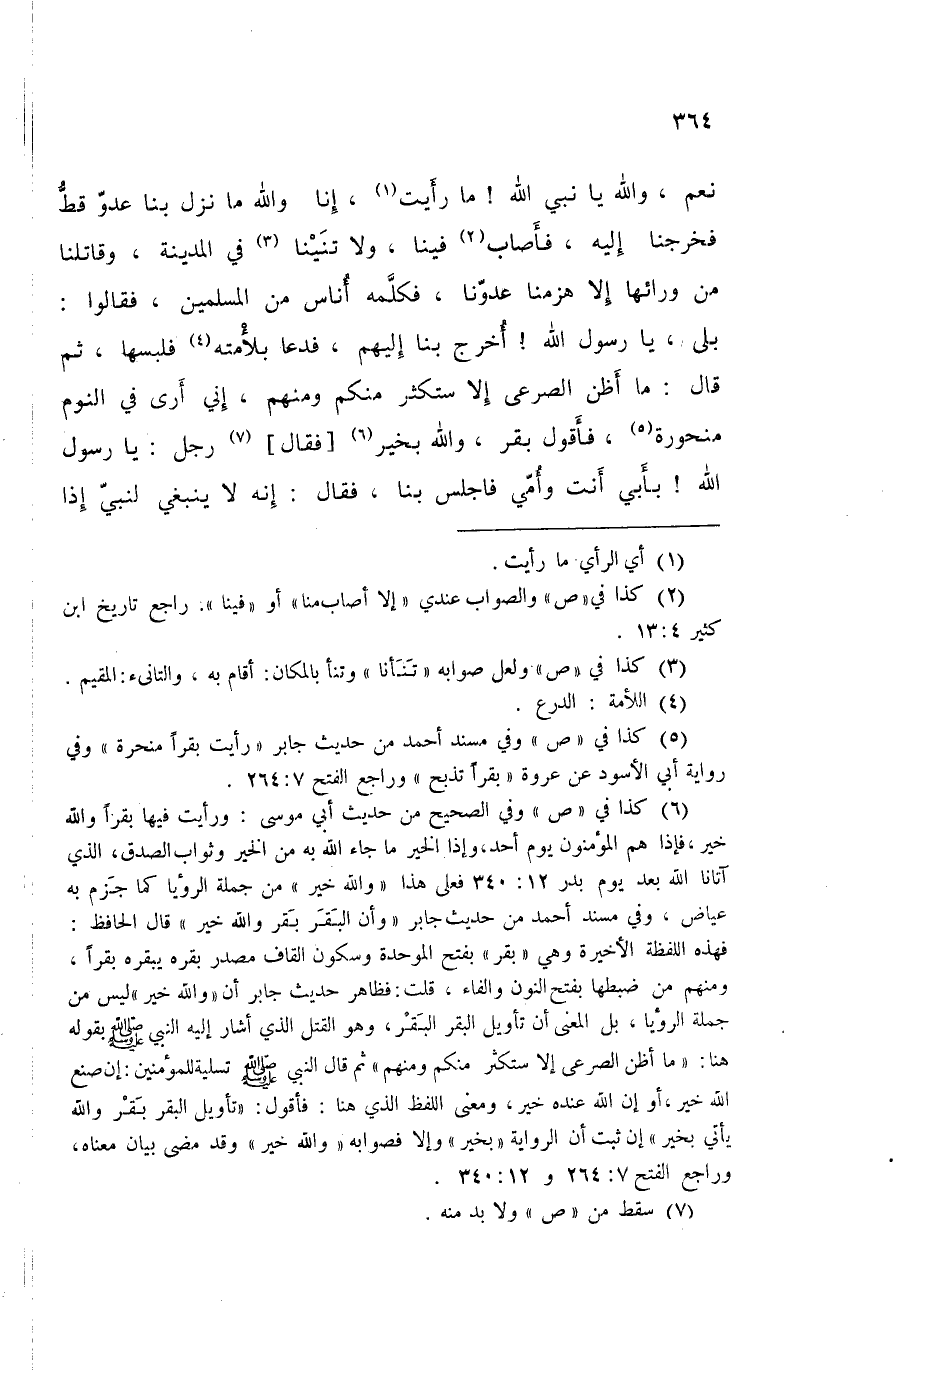 ٣٦٤
نعم ، والله يا نبي الله ! ما رأَيت(١) ، إنا والله ما نزل بنا عدوّ قطُّ
فخرجنا إليه ، فأَصاب(٢) فينا ، ولا تنَيْنا (٣) في المدينة ، وقاتلنا
من ورائها إلا هزمنا عدوّنا ، فكلَّمه أُناس من المسلمين ، فقالوا :
بلى ، يا رسول الله ! أُخرج بنا إليهم ، فدعا بلأْمته(٤) فلبسها ، ثم
قال : ما أَظن الصرعى إلا ستكثر منكم ومنهم ، إني أَرى في النوم
منحورة(٥) ، فأَقول بقر ، والله بخير(٦) [فقال] (٧) رجل : يا رسول
الله ! بأَبي أَنت وأُمّي فاجلس بنا ، فقال : إنه لا ينبغي لنبيّ إذا
(١) أي الرأي ما رأيت .
(٢) كذا في «ص» والصواب عندي «إلا أصاب منا» أو «فينا». راجع تاريخ ابن
كثير ٤:١٣ .
(٣) كذا في «ص» ولعل صوابه «تَنَأنا» وتنأ بالمكان: أقام به ، والتانىء:المقيم .
(٤) اللأمة : الدرع .
(٥) كذا في «ص» وفي مسند أحمد من حديث جابر «رأيت بقراً منحرة» وفي
رواية أبي الأسود عن عروة «بقراً تذبح» وراجع الفتح ٧:٢٦٤ .
(٦) كذا في «ص» وفي الصحيح من حديث أبي موسى : ورأيت فيها بقراً والله
خير ،فإذا هم المؤمنون يوم أحد،وإذا الخير ما جاء الله به من الخير وثواب الصدق، الذي
آتانا الله بعد يوم بدر ١٢:٣٤٠ فعلى هذا «والله خير» من جملة الرؤيا كما جزم به
عياض ، وفي مسند أحمد من حديث جابر «وأن البَقَرَ بَقر والله خير» قال الحافظ :
فهذه اللفظة الأخيرة وهي «بقر» بفتح الموحدة وسكون القاف مصدر بقره يبقره بقراً ،
ومنهم من ضبطها بفتح النون والفاء ، قلت:فظاهر حديث جابر أن «والله خير»ليس من
جملة الرؤيا ، بل المعنى أن تأويل البقر البَقْر، وهو القتل الذي أشار إليه النبي ﷺ بقوله
هنا: «ما أظن الصرعى إلا ستكثر منكم ومنهم» ثم قال النبي ﷺ تسلية للمؤمنين :إن صنع
الله خير ،أو إن الله عنده خير، ومعنى اللفظ الذي هنا : فأقول: «تأويل البقر بَقْر والله
يأتي بخير» إن ثبت أن الرواية «بخير» وإلا فصوابه «والله خير» وقد مضى بيان معناه،
وراجع الفتح ٧:٢٦٤ و ١٢:٣٤٠ .
(٧) سقط من «ص» ولا بد منه .